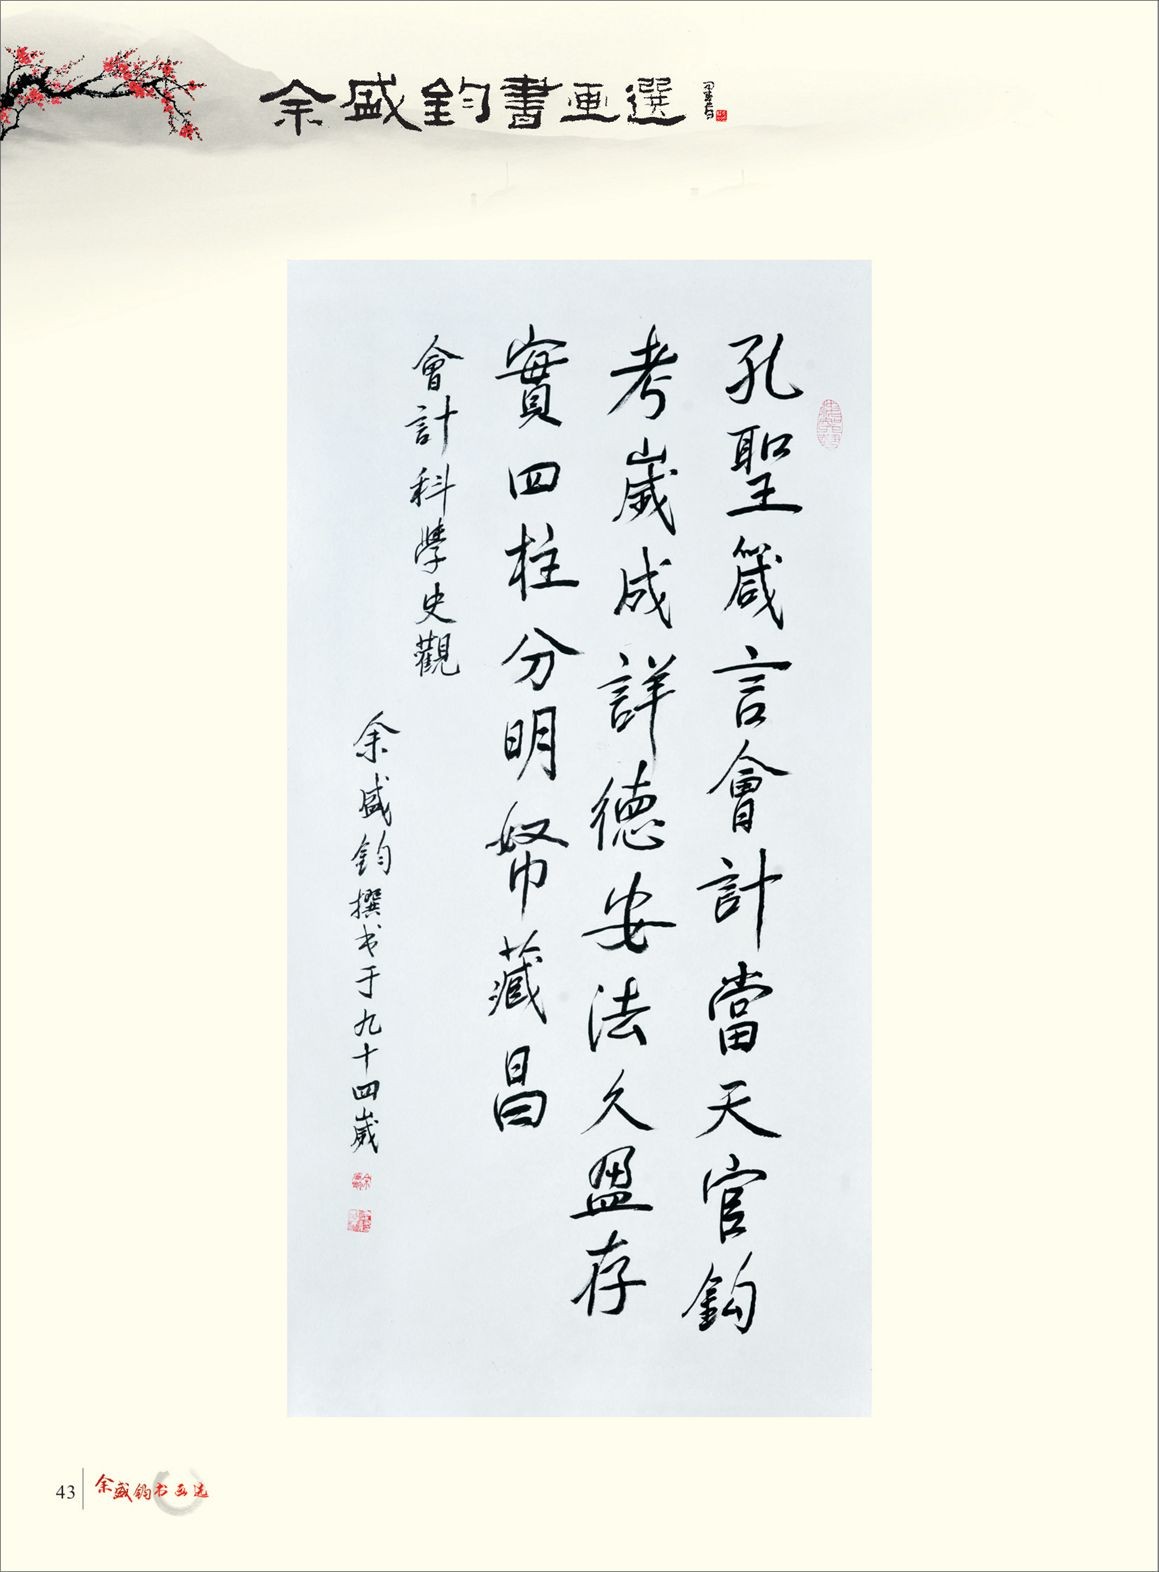 余盛鈞書画選
孔聖箴言會計當天官鈎
考嵗成詳德安法久盈存
實四柱分明帑藏昌
會計科學史觀
余盛鈞撰书于九十四嵗
43
余盛钧书画选